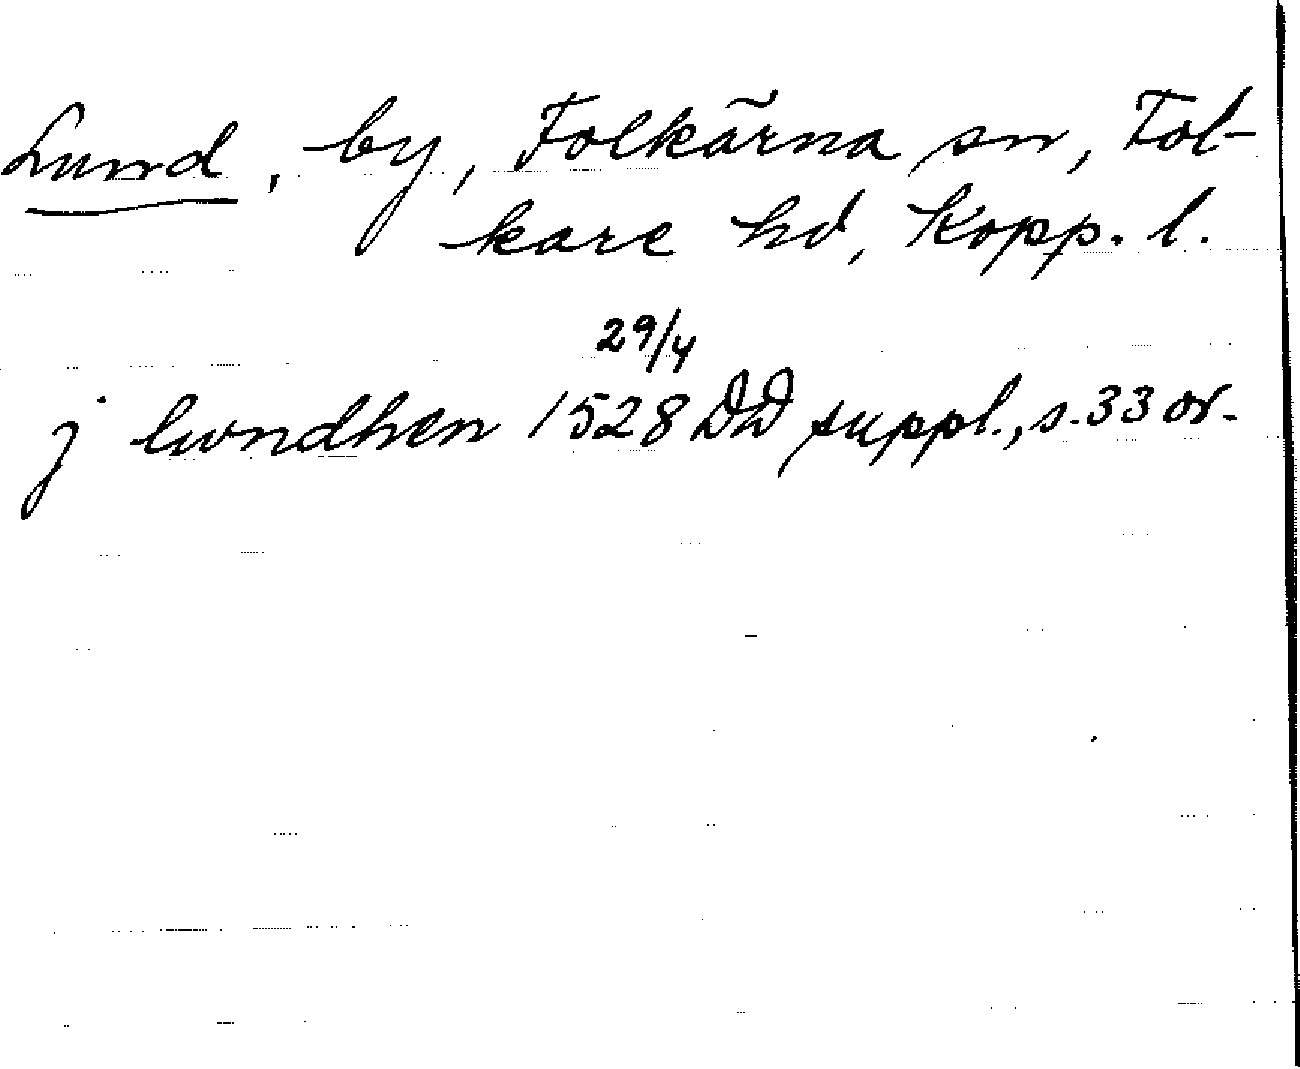 Lund, by, Folkärna sn, Fol-
kare hd, Kopp. l.
29/4
j lwndhen 1528 DD suppl., s. 33 or.